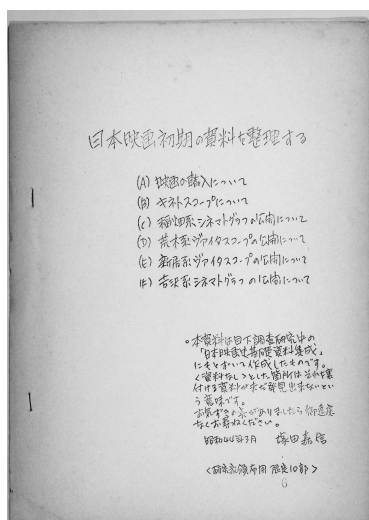 日本映画初期の資料を整理する
(A) 映画の輸入について
(B) キネトスコープについて
(C) 稲畑系シネマトグラフの公開について
(D) 荒木系ヴァイタスコープの公開について
(E) 新居系ヴァイタスコープの公開について
(F) 吉沢系シネマトグラフの公開について
本資料は目下調査研究中の
「日本映画史基礎資料集成」
にもとずいて作成したものです。
<資料なし>とした箇所はそれを裏
付ける資料が未だ発見出来ないとい
う意味です。
お気ずきの点がありましたら御遠慮
なくお尋ねください。
昭和44年3月 塚田嘉信
限定10部>
6